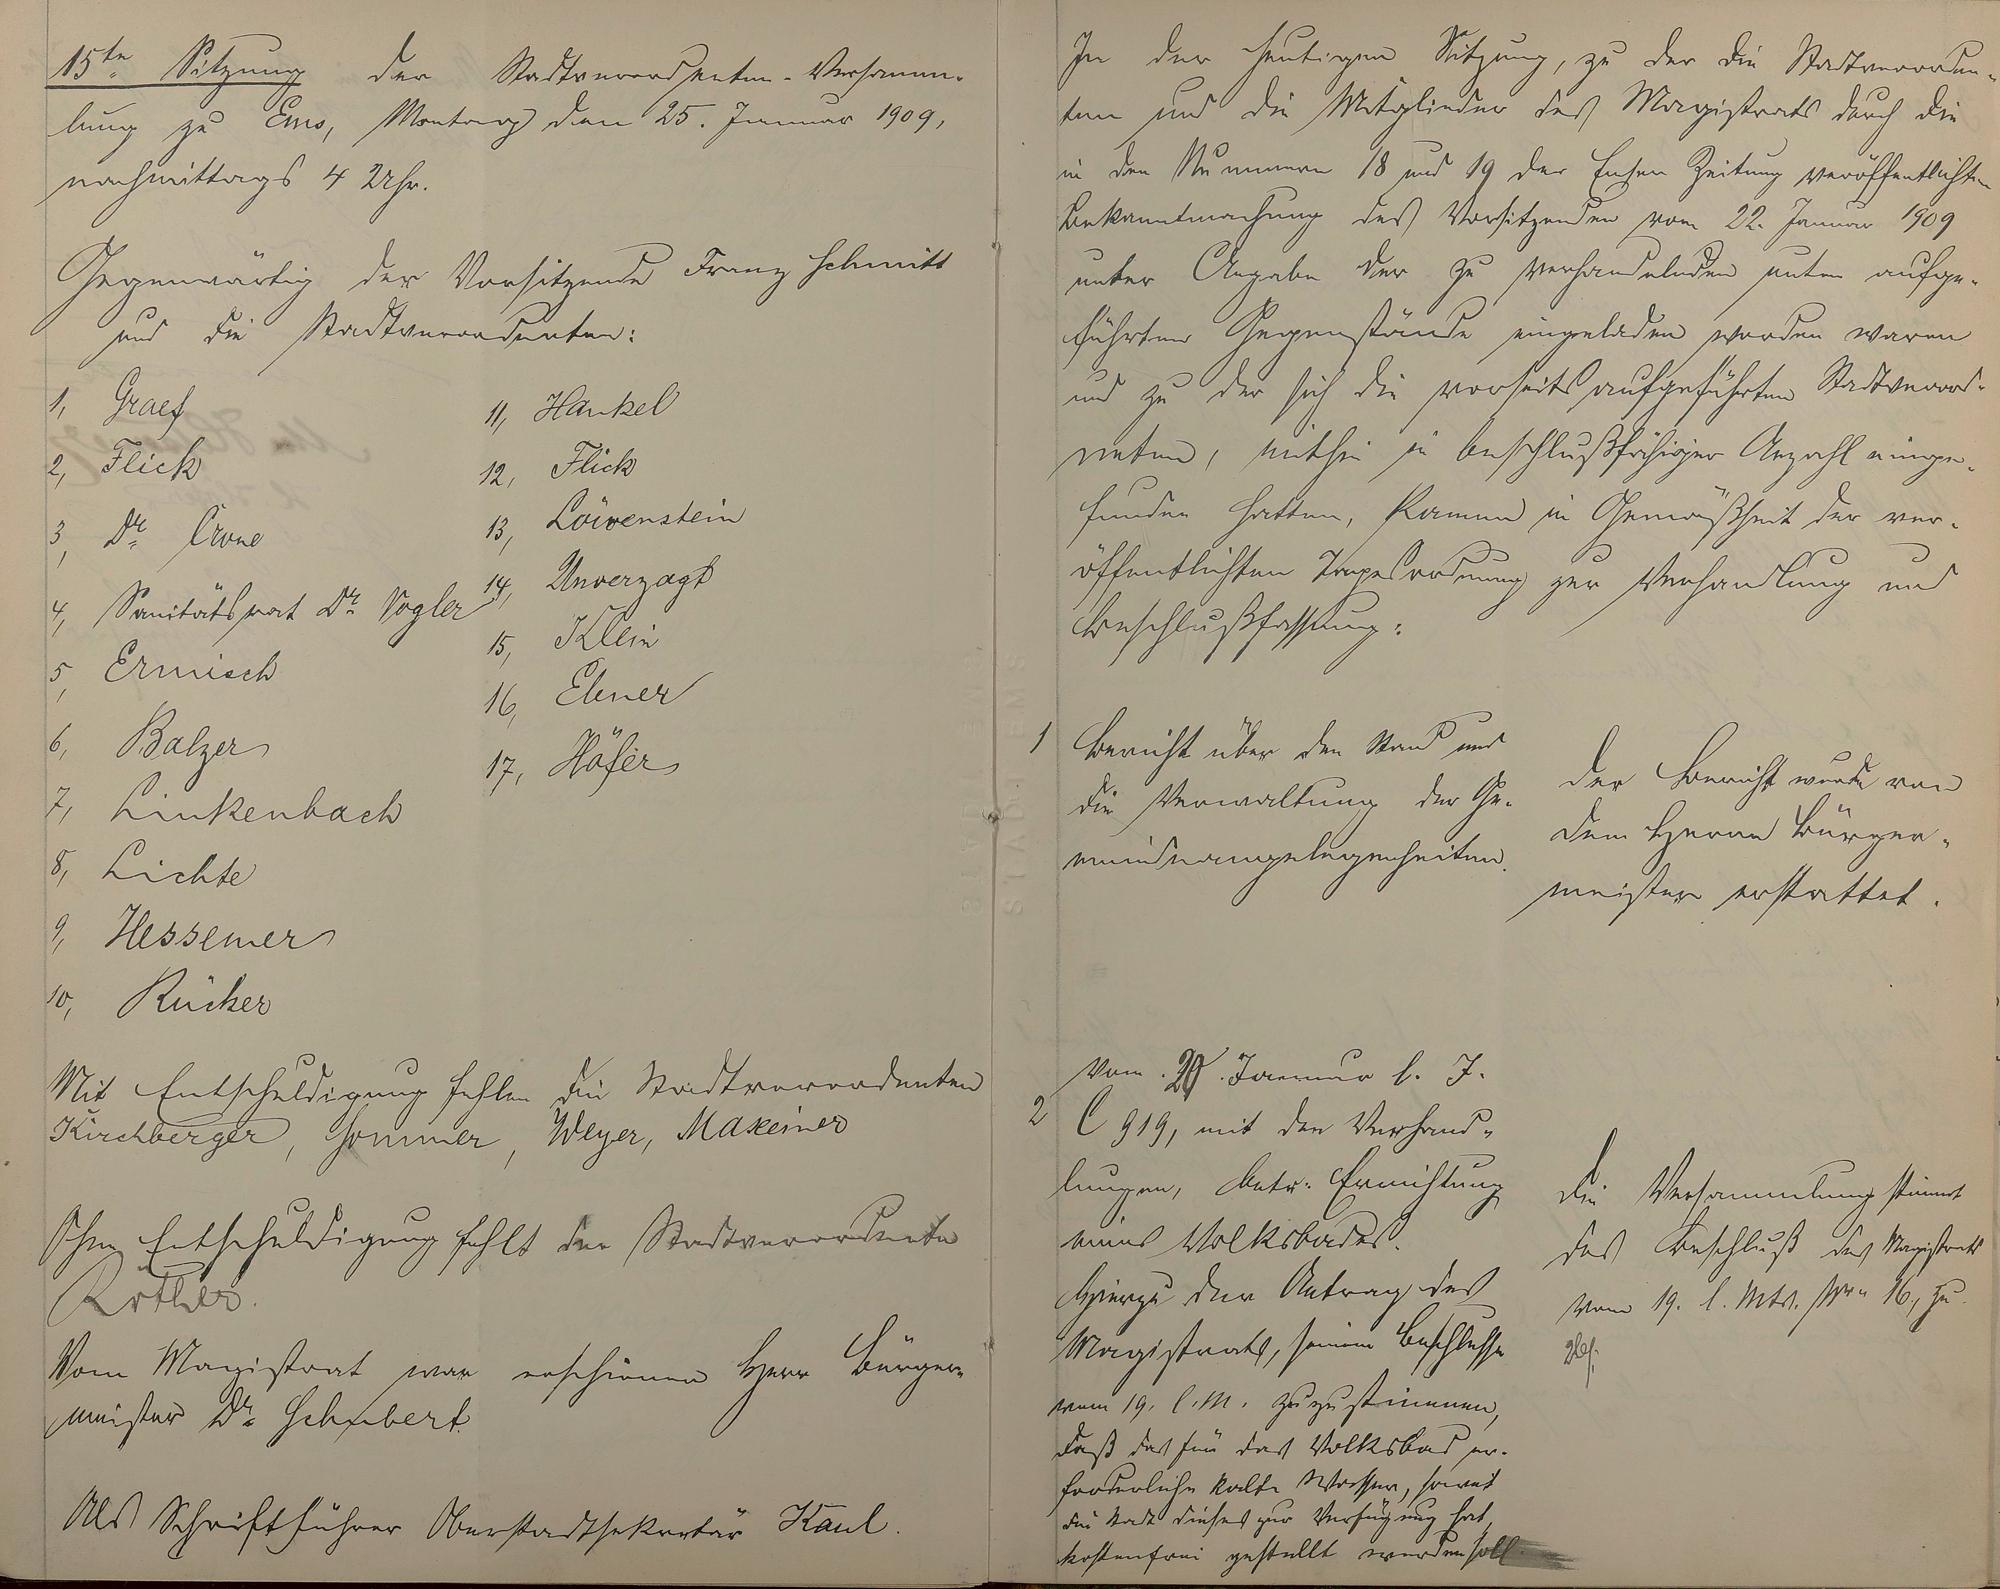 15te Sitzung der Stadtverordneten-Versamm-
lung zu Ems, Montag den 25. Januar 1909,
nachmittags 4 Uhr.
Gegenwärtig der Vorsitzende Franz Schmitt
und die Stadtverordneten:
1, Graef
2, Flick
3, Dr. Crone
4, Sanitätsrat Dr. Vogler
5, Ermisch
6, Balzer
7, Linkenbach
8, Lichte
9, Hessemer
10, Rücker
11, Hankel
12, Flick
13, Löwenstein
14, Unverzagt
15, Klein
16, Ebner
17, Höfer
Mit Entschuldigung fehlen die Stadtverordneten
Kirchberger, Sommer, Weyer, Maxeiner
Ohne Entschuldigung fehlt der Stadtverordnete
Rother.
Vom Magistrat war erschienen Herr Bürger-
meister Dr. Schubert.
Als Schriftführer Oberstadtsekretär Kaul.
In der heutigen Sitzung, zu der die Stadtverordne-
ten und die Mitglieder des Magistrats durch die
in den Nummern 18 und 19 der Emser Zeitung veröffentlichte
Bekanntmachung des Vorsitzenden vom 22. Januar 1909
unter Angabe der zu verhandelnden unten aufge-
führten Gegenstände eingeladen worden waren
und zu der sich die vorseits aufgeführten Stadtverord-
neten, mithin in beschlußfähiger Anzahl einge-
funden hatten, kamen in Gemäßheit der ver-
öffentlichten Tagesordnung zur Verhandlung und
Beschlußfassung:
1 Bericht über den Stand und
die Verwaltung der Ge-
meindeangelegenheiten.
Der Bericht wurde von
dem Herrn Bürger-
meister erstattet.
Vom 20. Januar l. J.
2 C 919, mit den Verhand-
lungen, betr. Errichtung
eines Volksbades.
Hierzu der Antrag des
Magistrats, seinem Beschlusse
vom 19. l. M. zuzustimmen,
daß das für das Volksbad er-
forderliche kalte Wasser, soweit
die Stadt dieses zur Verfügung hat,
kostenfrei gestellt werden soll
Die Versammlung stimmt
das Beschluß des Magistrats
vom 19. l. Mts. Nr. 16, zu.